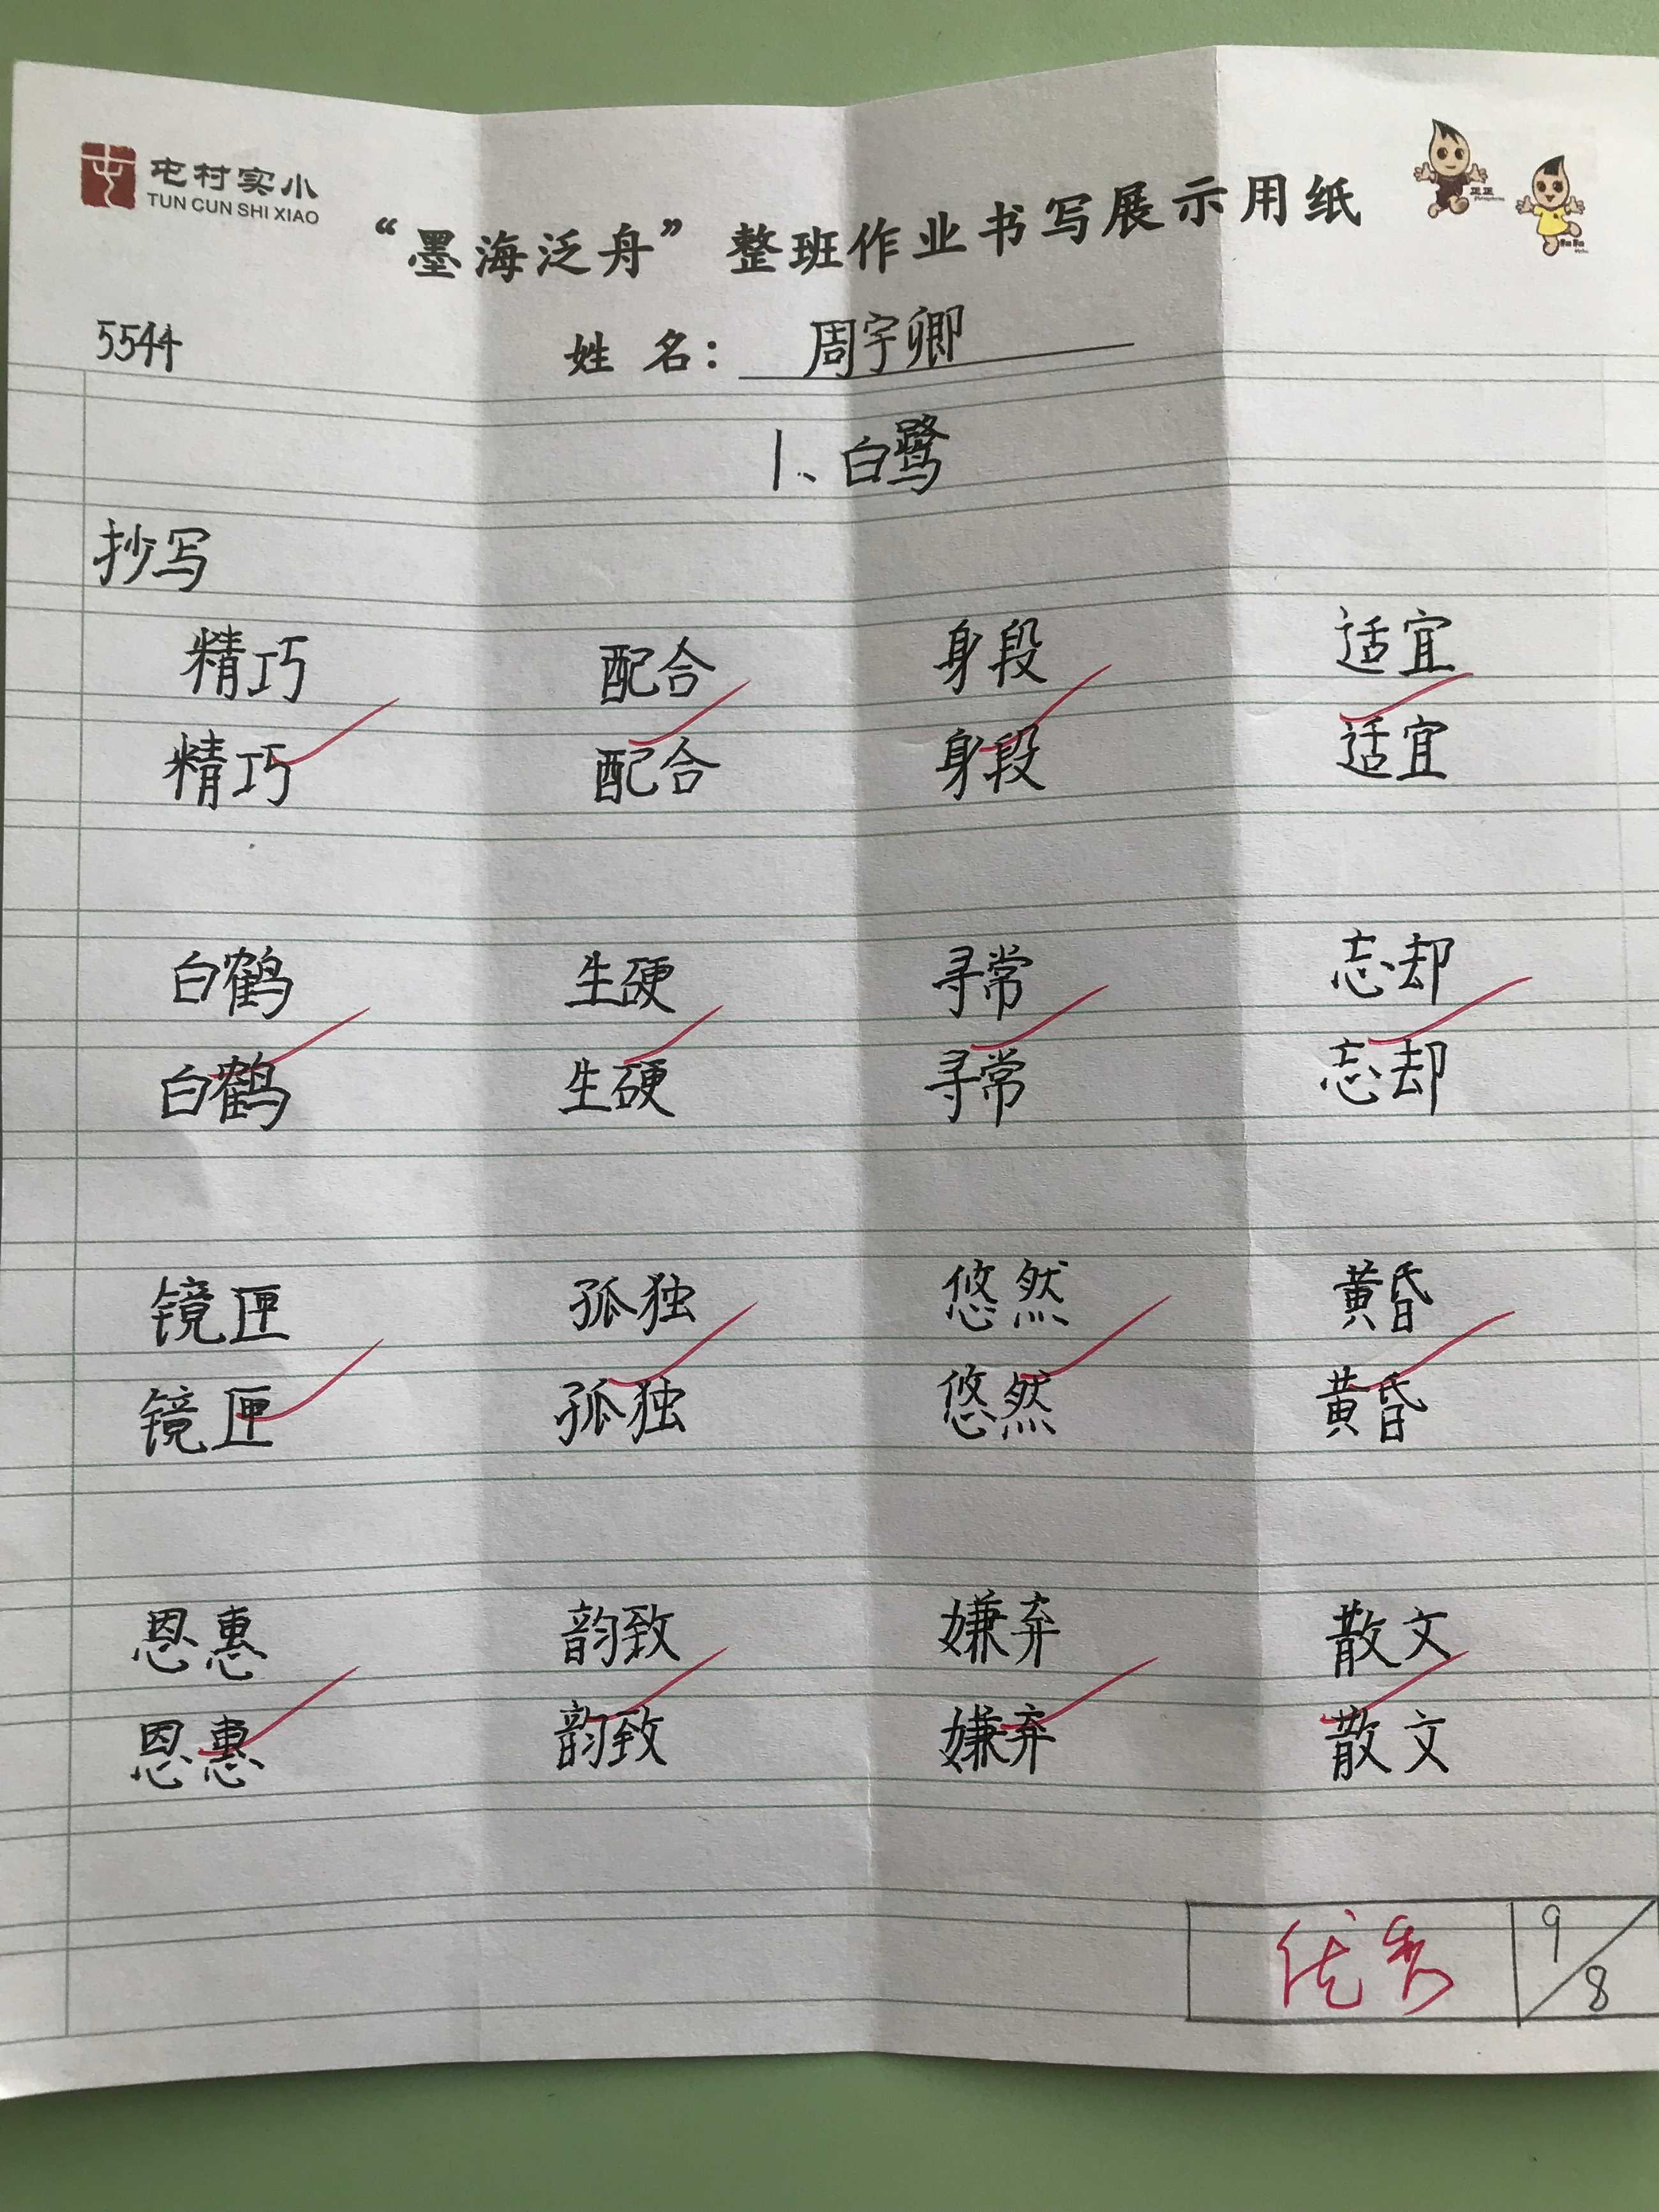 屯村实小
TUN CUN SHI XIAO
“墨海泛舟”整班作业书写展示用纸
5544 姓 名： 周宇卿
1、白鹭
抄写
精巧 配合 身段 适宜
精巧 配合 身段 适宜
白鹤 生硬 寻常 忘却
白鹤 生硬 寻常 忘却
镜匣 孤独 悠然 黄昏
镜匣 孤独 悠然 黄昏
恩惠 韵致 嫌弃 散文
恩惠 韵致 嫌弃 散文
优秀 9/8